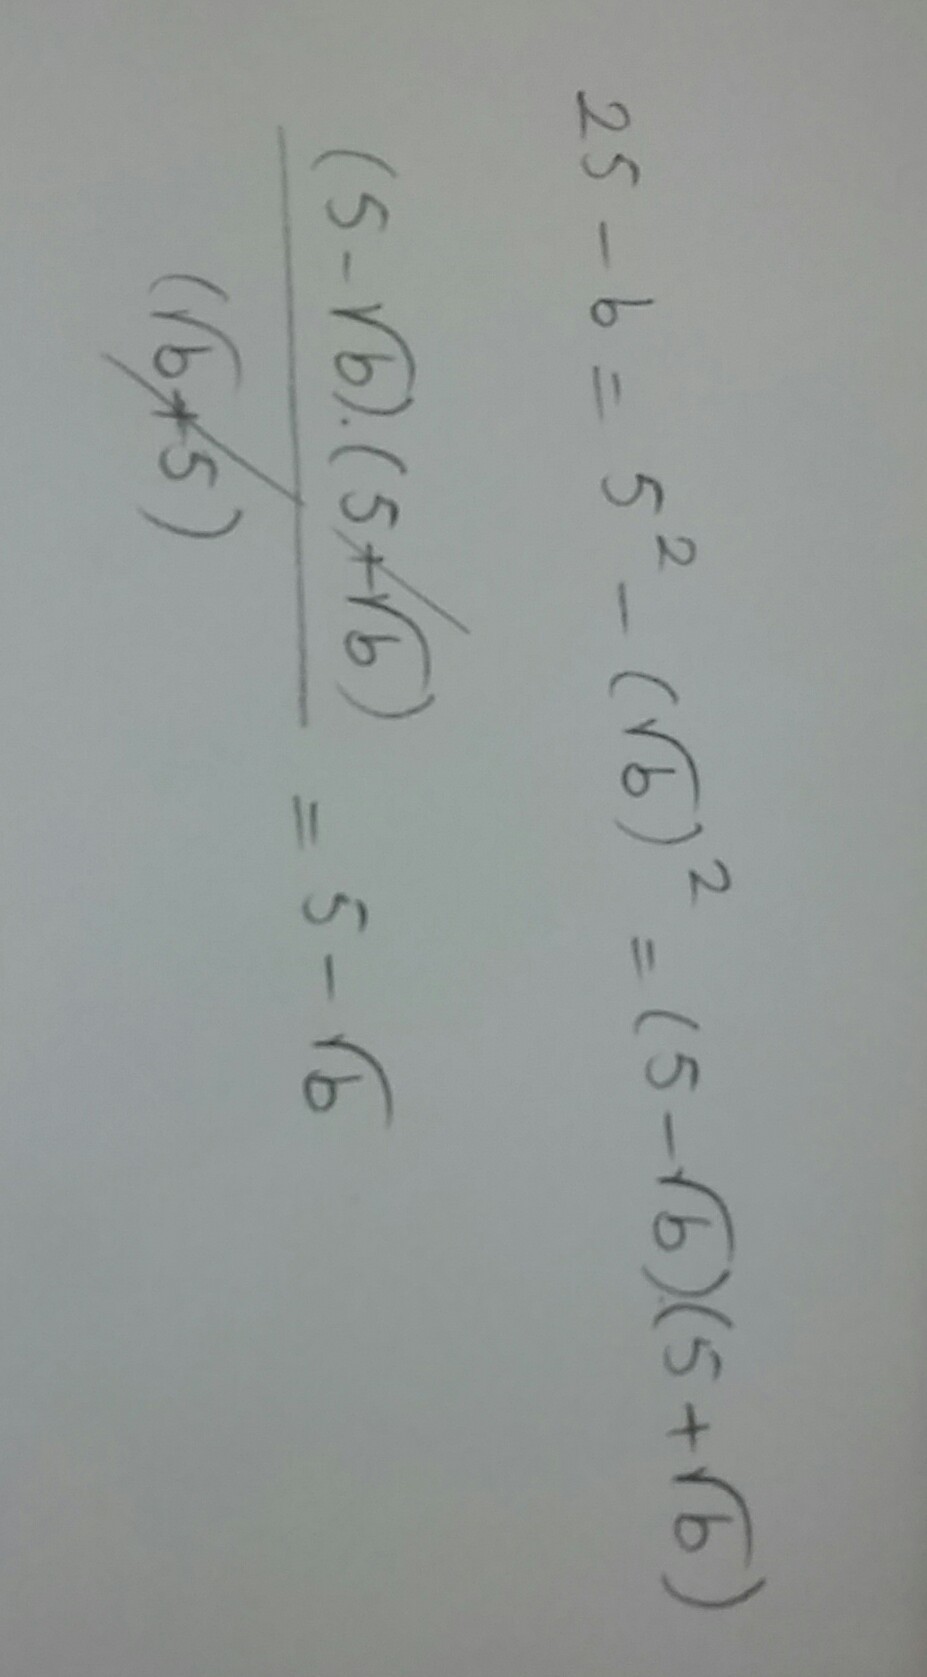 25 - b = 5² - (√b)² = (5 - √b)(5 + √b)
(5 - √b).(5 + √b)
(√b + 5)
= 5 - √b